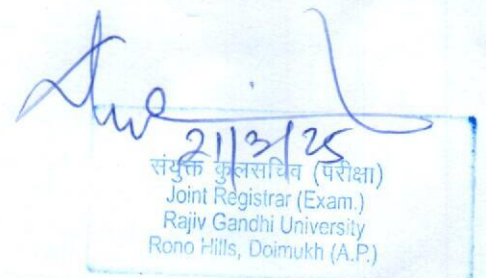 21/3/25
संयुक्त कुलसचिव (परीक्षा)
Joint Registrar (Exam.)
Rajiv Gandhi University
Rono Hills, Doimukh (A.P.)